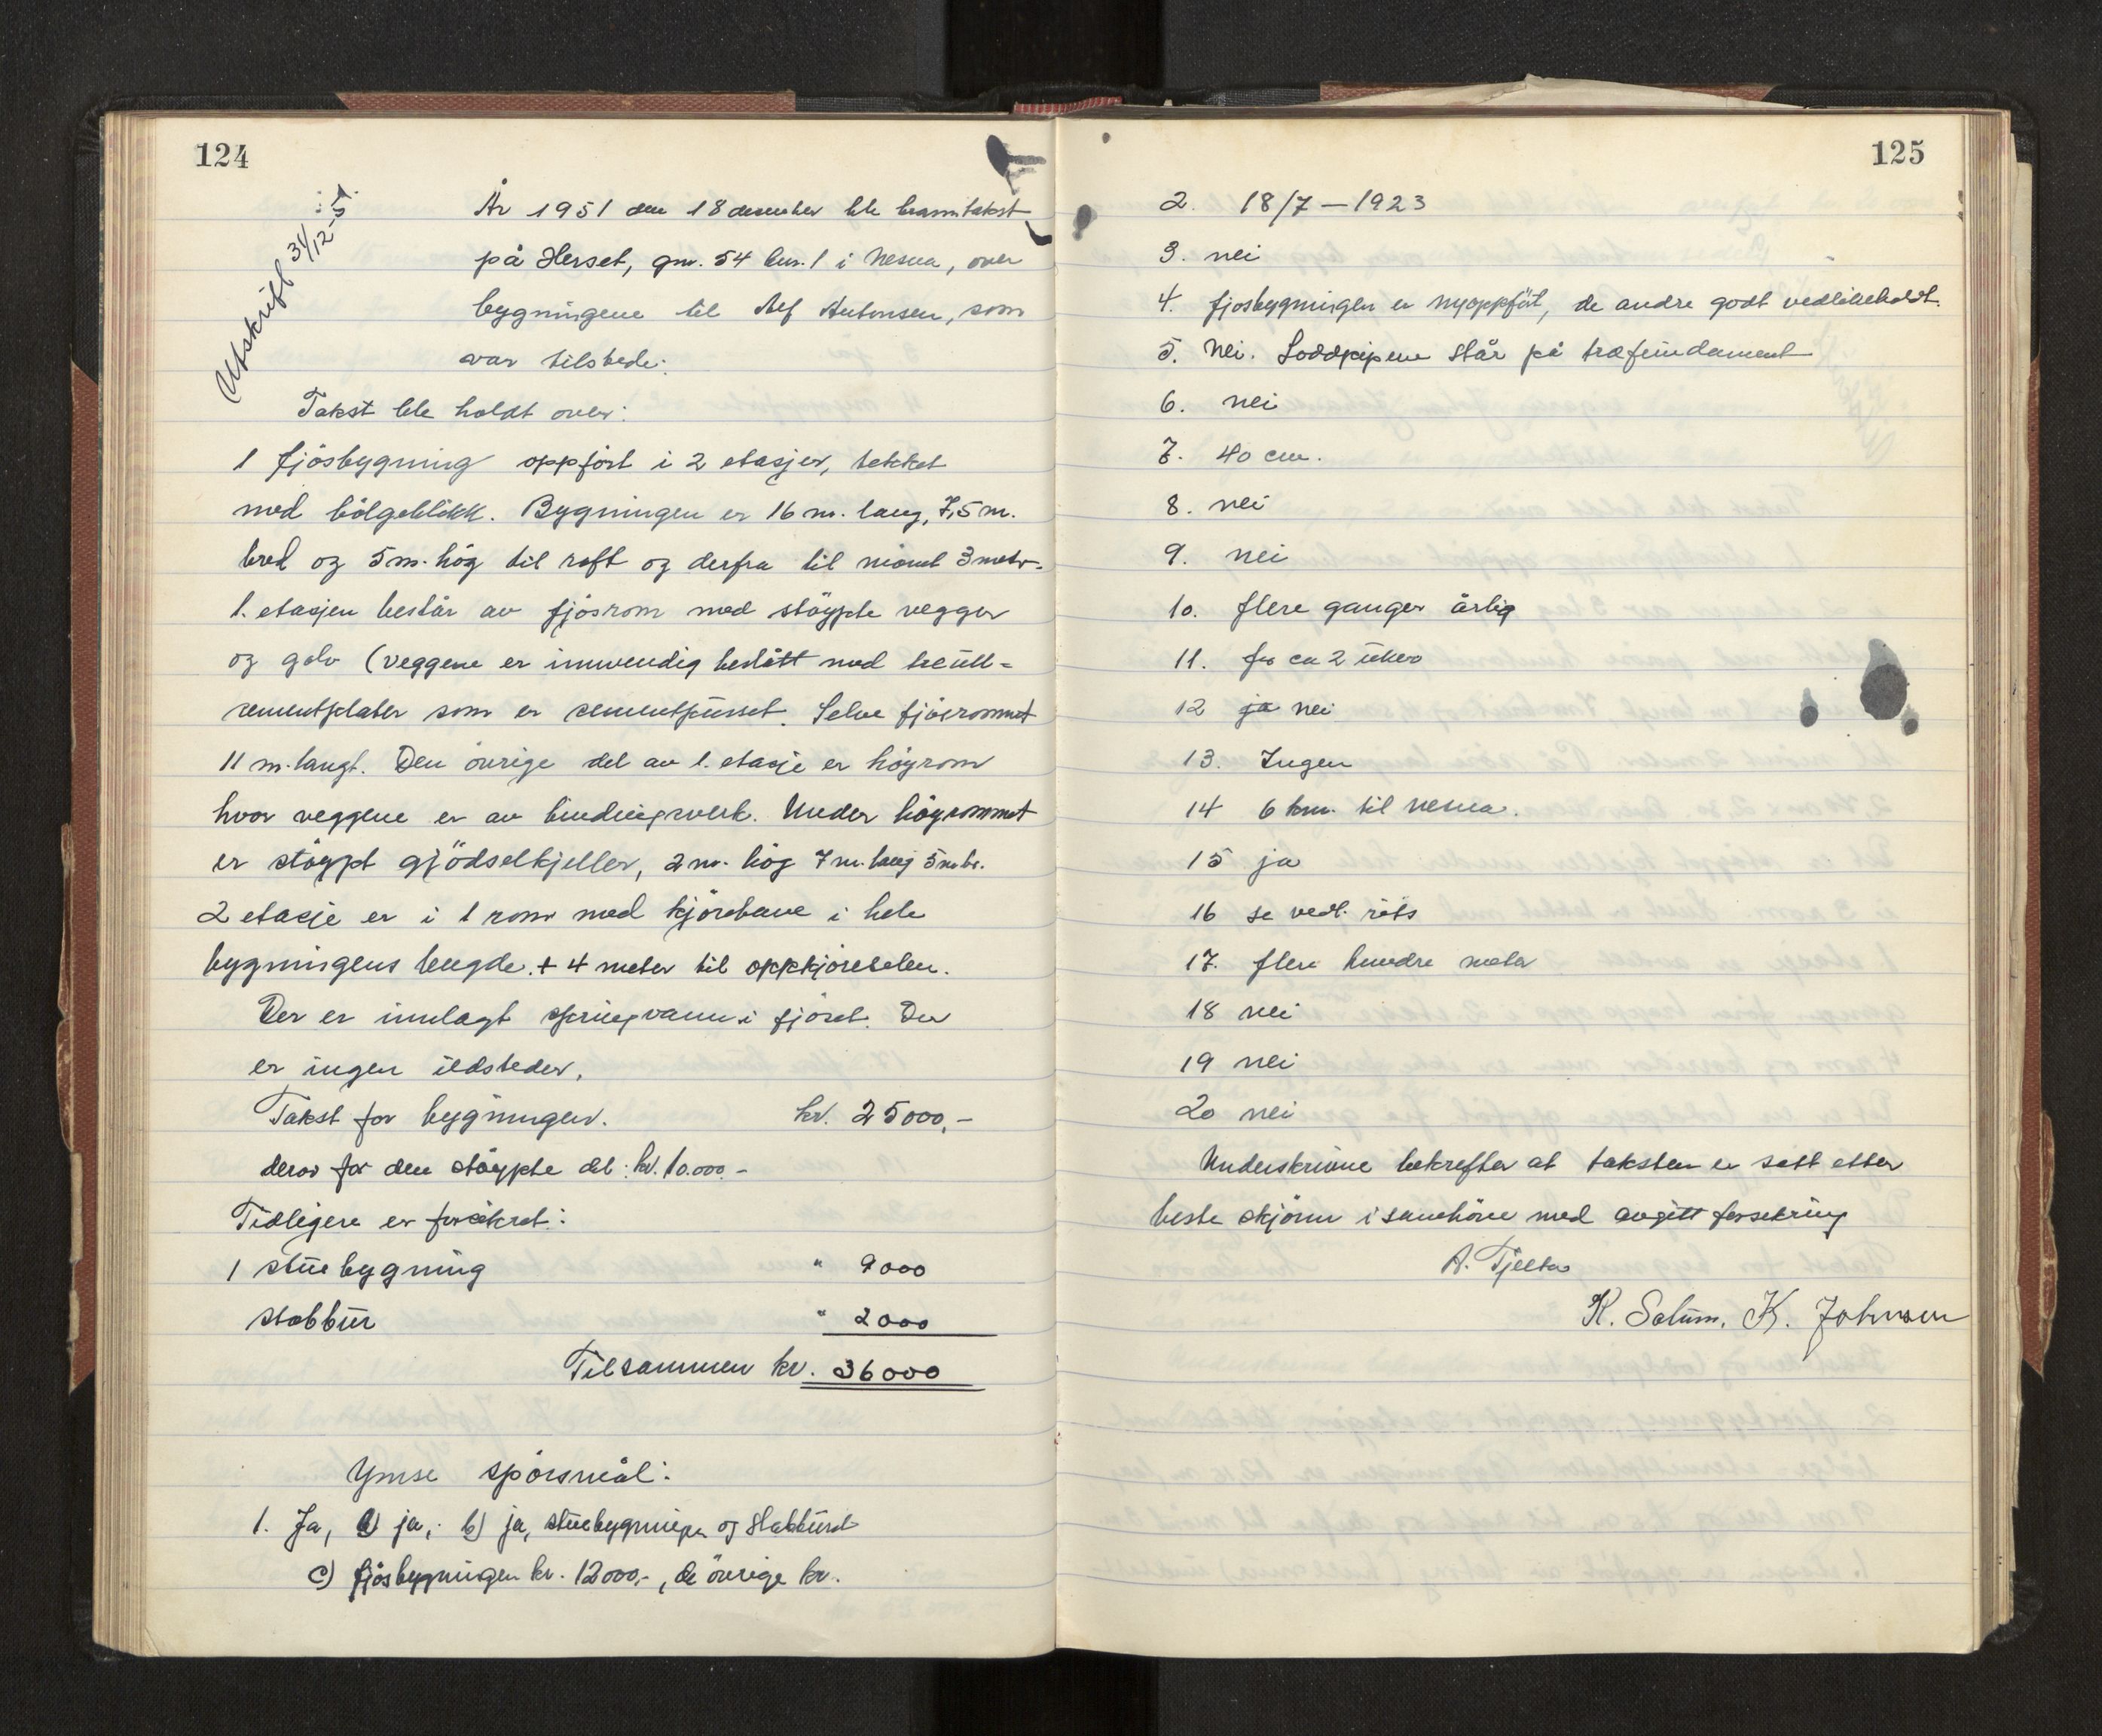 124
Utskrift 31/12-51.
År 1951 den 18 desember ble branntakst
på Herset, gnr. 54 bnr. 1 i Nesna, over
bygningene til Alf Antonsen, som
var tilstede:
Takst ble holdt over:
1 fjösbygning oppfört i 2 etasjer, tekket
med bölgeblikk. Bygningen er 16 m. lang, 7,5 m.
bred og 5 m. hög til raft og derfra til mönet 3 metr.
1. etasjen består av fjösrom med stöypte vegger
og golv (veggene er innvendig beslått med treull-
sementplater som er sementpusset. Selve fjösrommet
11 m. langt. Den övrige del av 1. etasje er höyrom
hvor veggene er av bindingsverk. Under höyrommet
er stöypt gjödselkjeller, 2 m. hög 7 m. lang 5 m. br.
2 etasje er i 1 rom med kjörebane i hele
bygningens lengde. + 4 meter til oppkjörselen.
Der er innlagt springvann i fjöset. Der
er ingen ildsteder.
Takst for bygningen. kr. 25000,-
derav for den stöypte del: kr. 10.000.-
Tidligere er forsikret:
1 stuebygning " 9000
stabbur " 2000
Tilsammen kr. 36000
Ymse spörsmål:
1. Ja, a) ja, b) ja, stuebygningen og stabburet
c) fjösbygningen kr. 12000,-, de övrige kr.
125
2. 18/7 - 1923
3. nei
4. fjösbygningen er nyoppfört, de andre godt vedlikeholdt.
5. Nei. Loddpipene står på træfundament
6. nei
7. 40 cm.
8. nei
9. nei
10. flere ganger årlig
11. for ca 2 uker
12 ja nei
13. Ingen
14 6 km. til Nesna.
15 ja
16 se vedl. riss
17. flere hundre meter
18 nei
19 nei
20 nei
Underskrivne bekrefter at taksten er satt etter
beste skjönn i samhöve med avgitt forsikring
A. Tjelta
K. Solum. K. Johnsen